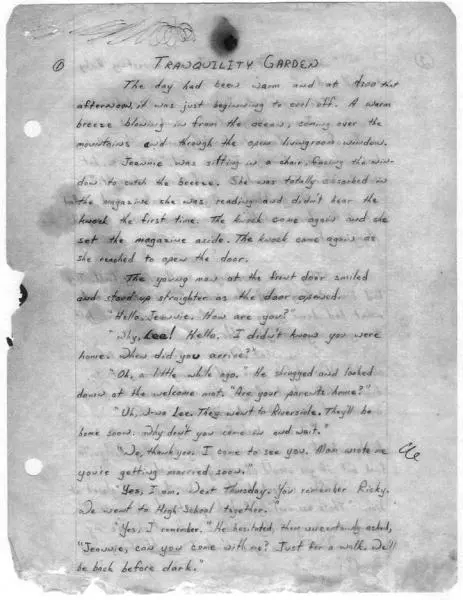 ① TRANQUILITY GARDEN
The day had been warm and at 4:00 that
afternoon, it was just beginning to cool off. A warm
breeze blowing in from the ocean, coming over the
mountains and through the open livingroom window.
Jeannie was sitting in a chair, facing the win-
dow to catch the breeze. She was totally absorbed in
the magazine she was reading and didn't hear the
knock the first time. The knock came again and she
set the magazine aside. The knock came again as
she reached to open the door.
The young man at the front door smiled
and stood up straighter as the door opened.
"Hello, Jeannie. How are you?"
"Why, Lee! Hello. I didn't know you were
home. When did you arrive?"
"Oh, a little while ago." He shrugged and looked
down at the welcome mat. "Are your parents home?"
"Uh, no Lee. They went to Riverside. They'll be
home soon. Why don't you come in and wait."
"No, thank you. I came to see you. Mom wrote me
you're getting married soon."
"Yes, I am. Next Thursday. You remember Ricky.
We went to High School together."
"Yes. I remember." He hesitated, then uncertainly asked,
"Jeannie, can you come with me? Just for a walk. We'll
be back before dark."